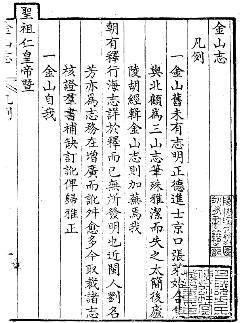 金山志
凡例
一金山舊未有志明正德進士京口張萊始合焦
與北顧為三山志筆殊雅潔而失之太簡後廬
陵胡經輯金山志則加蕪焉我
朝有釋行海志詳於釋而已無所發明也近閩人劉名
芳亦為志務在增廣而訛舛愈多今取載諸志
核證羣書補缺訂訛俾歸雅正
一金山自我
聖祖仁皇帝暨
金山志
凡例